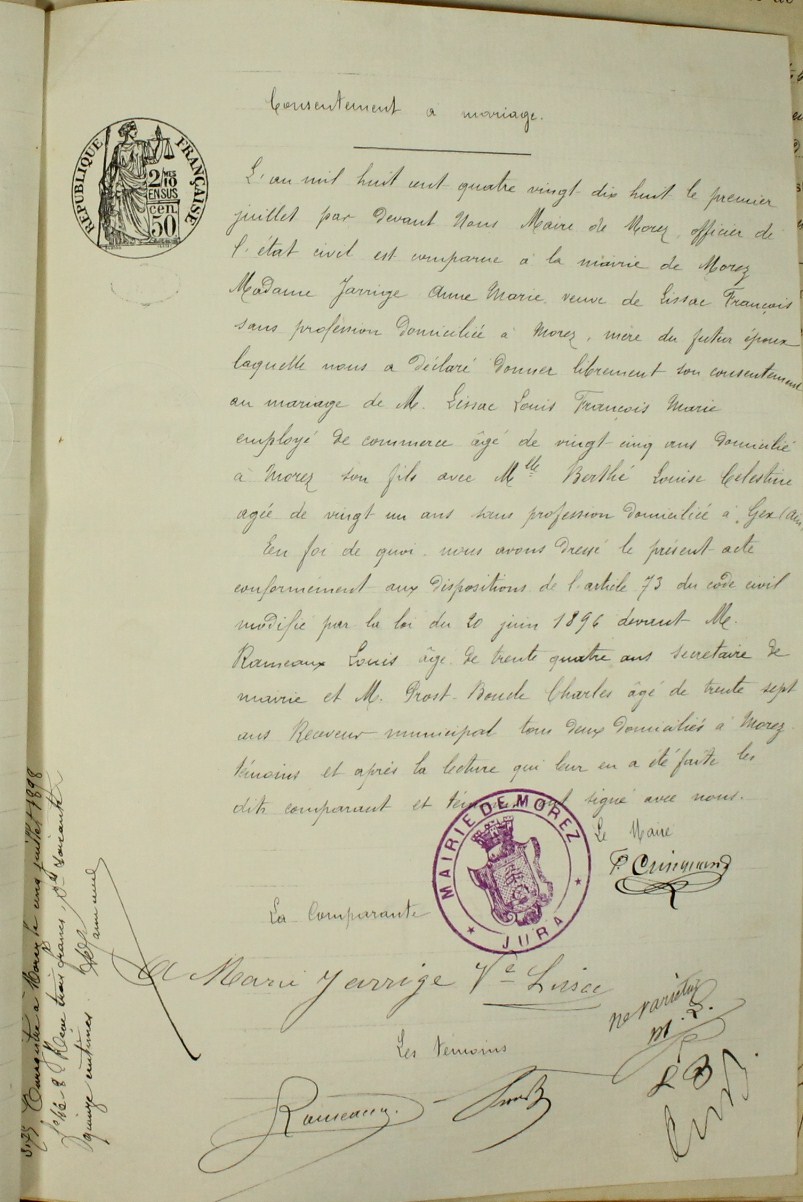 Consentement a mariage.
RÉPUBLIQUE FRANÇAISE
2/10 MES
EN SUS
cen.
50
L'an mil huit cent quatre vingt dix huit le premier
juillet par devant Nous Maire de Morez, officier de
l'état civil est comparue à la mairie de Morez
Madame Jarrige Anne Marie, veuve de Lissac François
sans profession domiciliée à Morez, mère du futur époux
laquelle nous a déclaré donner librement son consentement
au mariage de M. Lissac Louis François Marie
employé de commerce âgé de vingt cinq ans domicilié
à Morez son fils avec Mlle Berthé Louise Celestine
agée de vingt un ans sans profession domiciliée à Gex (Ain)
En foi de quoi nous avons dressé le présent acte
conformément aux dispositions de l'article 73 du code civil
modifié par la loi du 20 juin 1896 devant M.
Rameaux Louis âgé de trente quatre ans secretaire de
mairie et M. Prost-Boucle Charles âgé de trente sept
ans Receveur municipal tous deux domiciliés à Morez
témoins et après la lecture qui leur en a été faite les
dits comparant et signé avec nous.
Le Maire
MAIRIE DE MOREZ
JURA
La Comparante
A Marie Jarrige Ve Lissac
ne varietur
Les temoins
L B
Rameaux
Enregistré à Morez le onze juillet 1898
Reçu trois francs, Dmes soixante
quinze centimes.